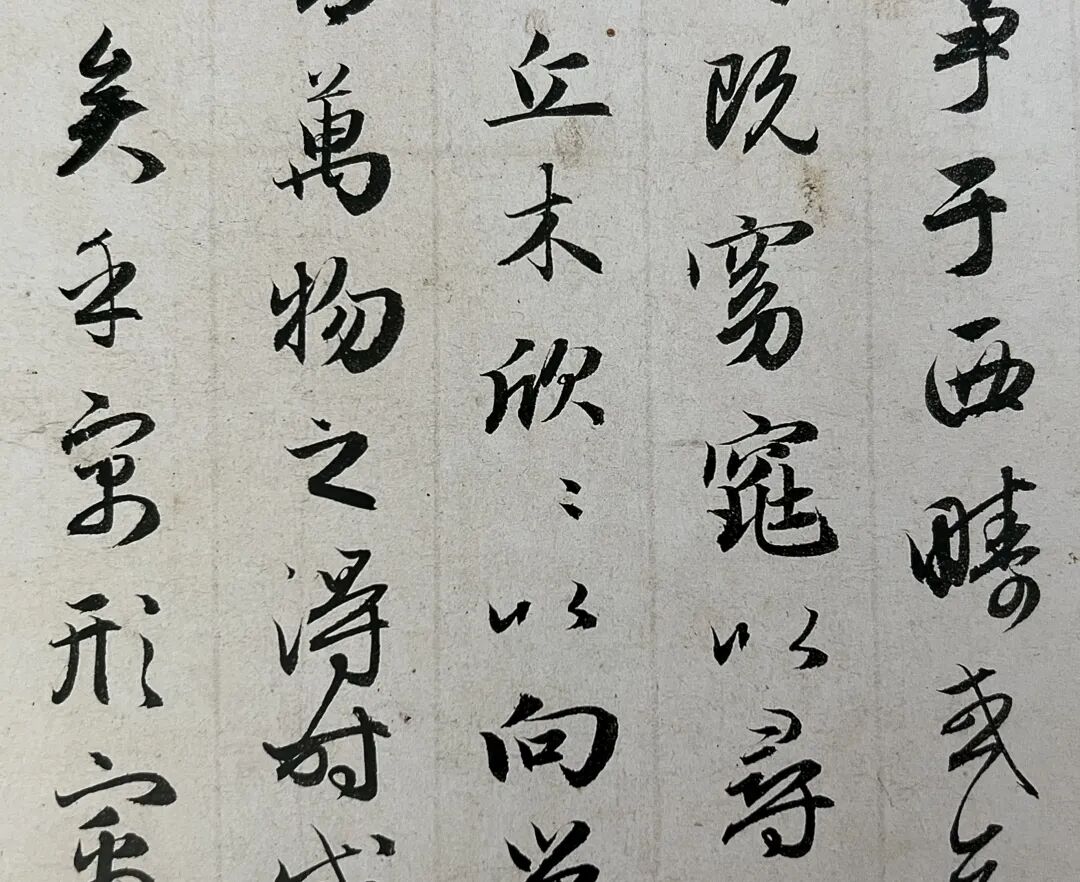 事于西疇或
既窈窕以尋
丘木欣〻以向
萬物之得時
矣乎寓形